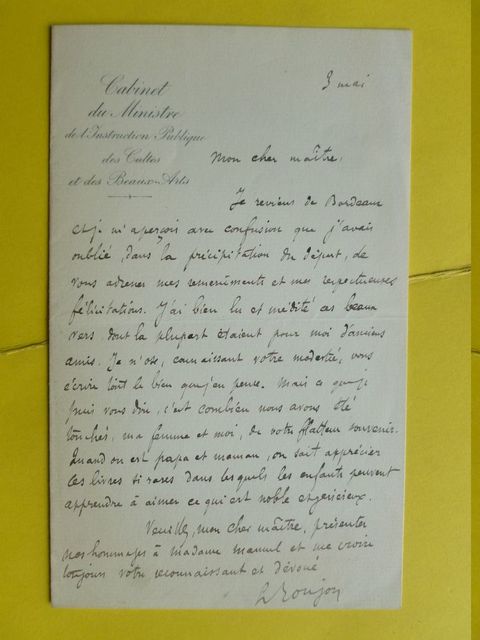 Cabinet
du Ministre
de l'Instruction Publique
des Cultes
et des Beaux-Arts
3 mai
Mon cher maître,
Je reviens de Bordeaux
et je m'aperçois avec confusion que j'avais
oublié, dans la précipitation du départ, de
vous adresser mes remerciments et mes respectueuses
félicitations. J'ai bien lu et médité ces beaux
vers dont la plupart étaient pour moi d'anciens
amis. Je n'ose, connaissant votre modestie, vous
écrire tout le bien que j'en pense. Mais ce que je
puis vous dire, c'est combien nous avons été
touchés, ma femme et moi, de votre flatteur souvenir.
Quand on est papa et maman, on sait apprécier
les livres si rares dans lesquels les enfants peuvent
apprendre à aimer ce qui est noble et généreux.
Veuillez, mon cher maître, présenter
mes hommages à madame manuel et me croire
toujours votre reconnaissant et dévoué
Roujon